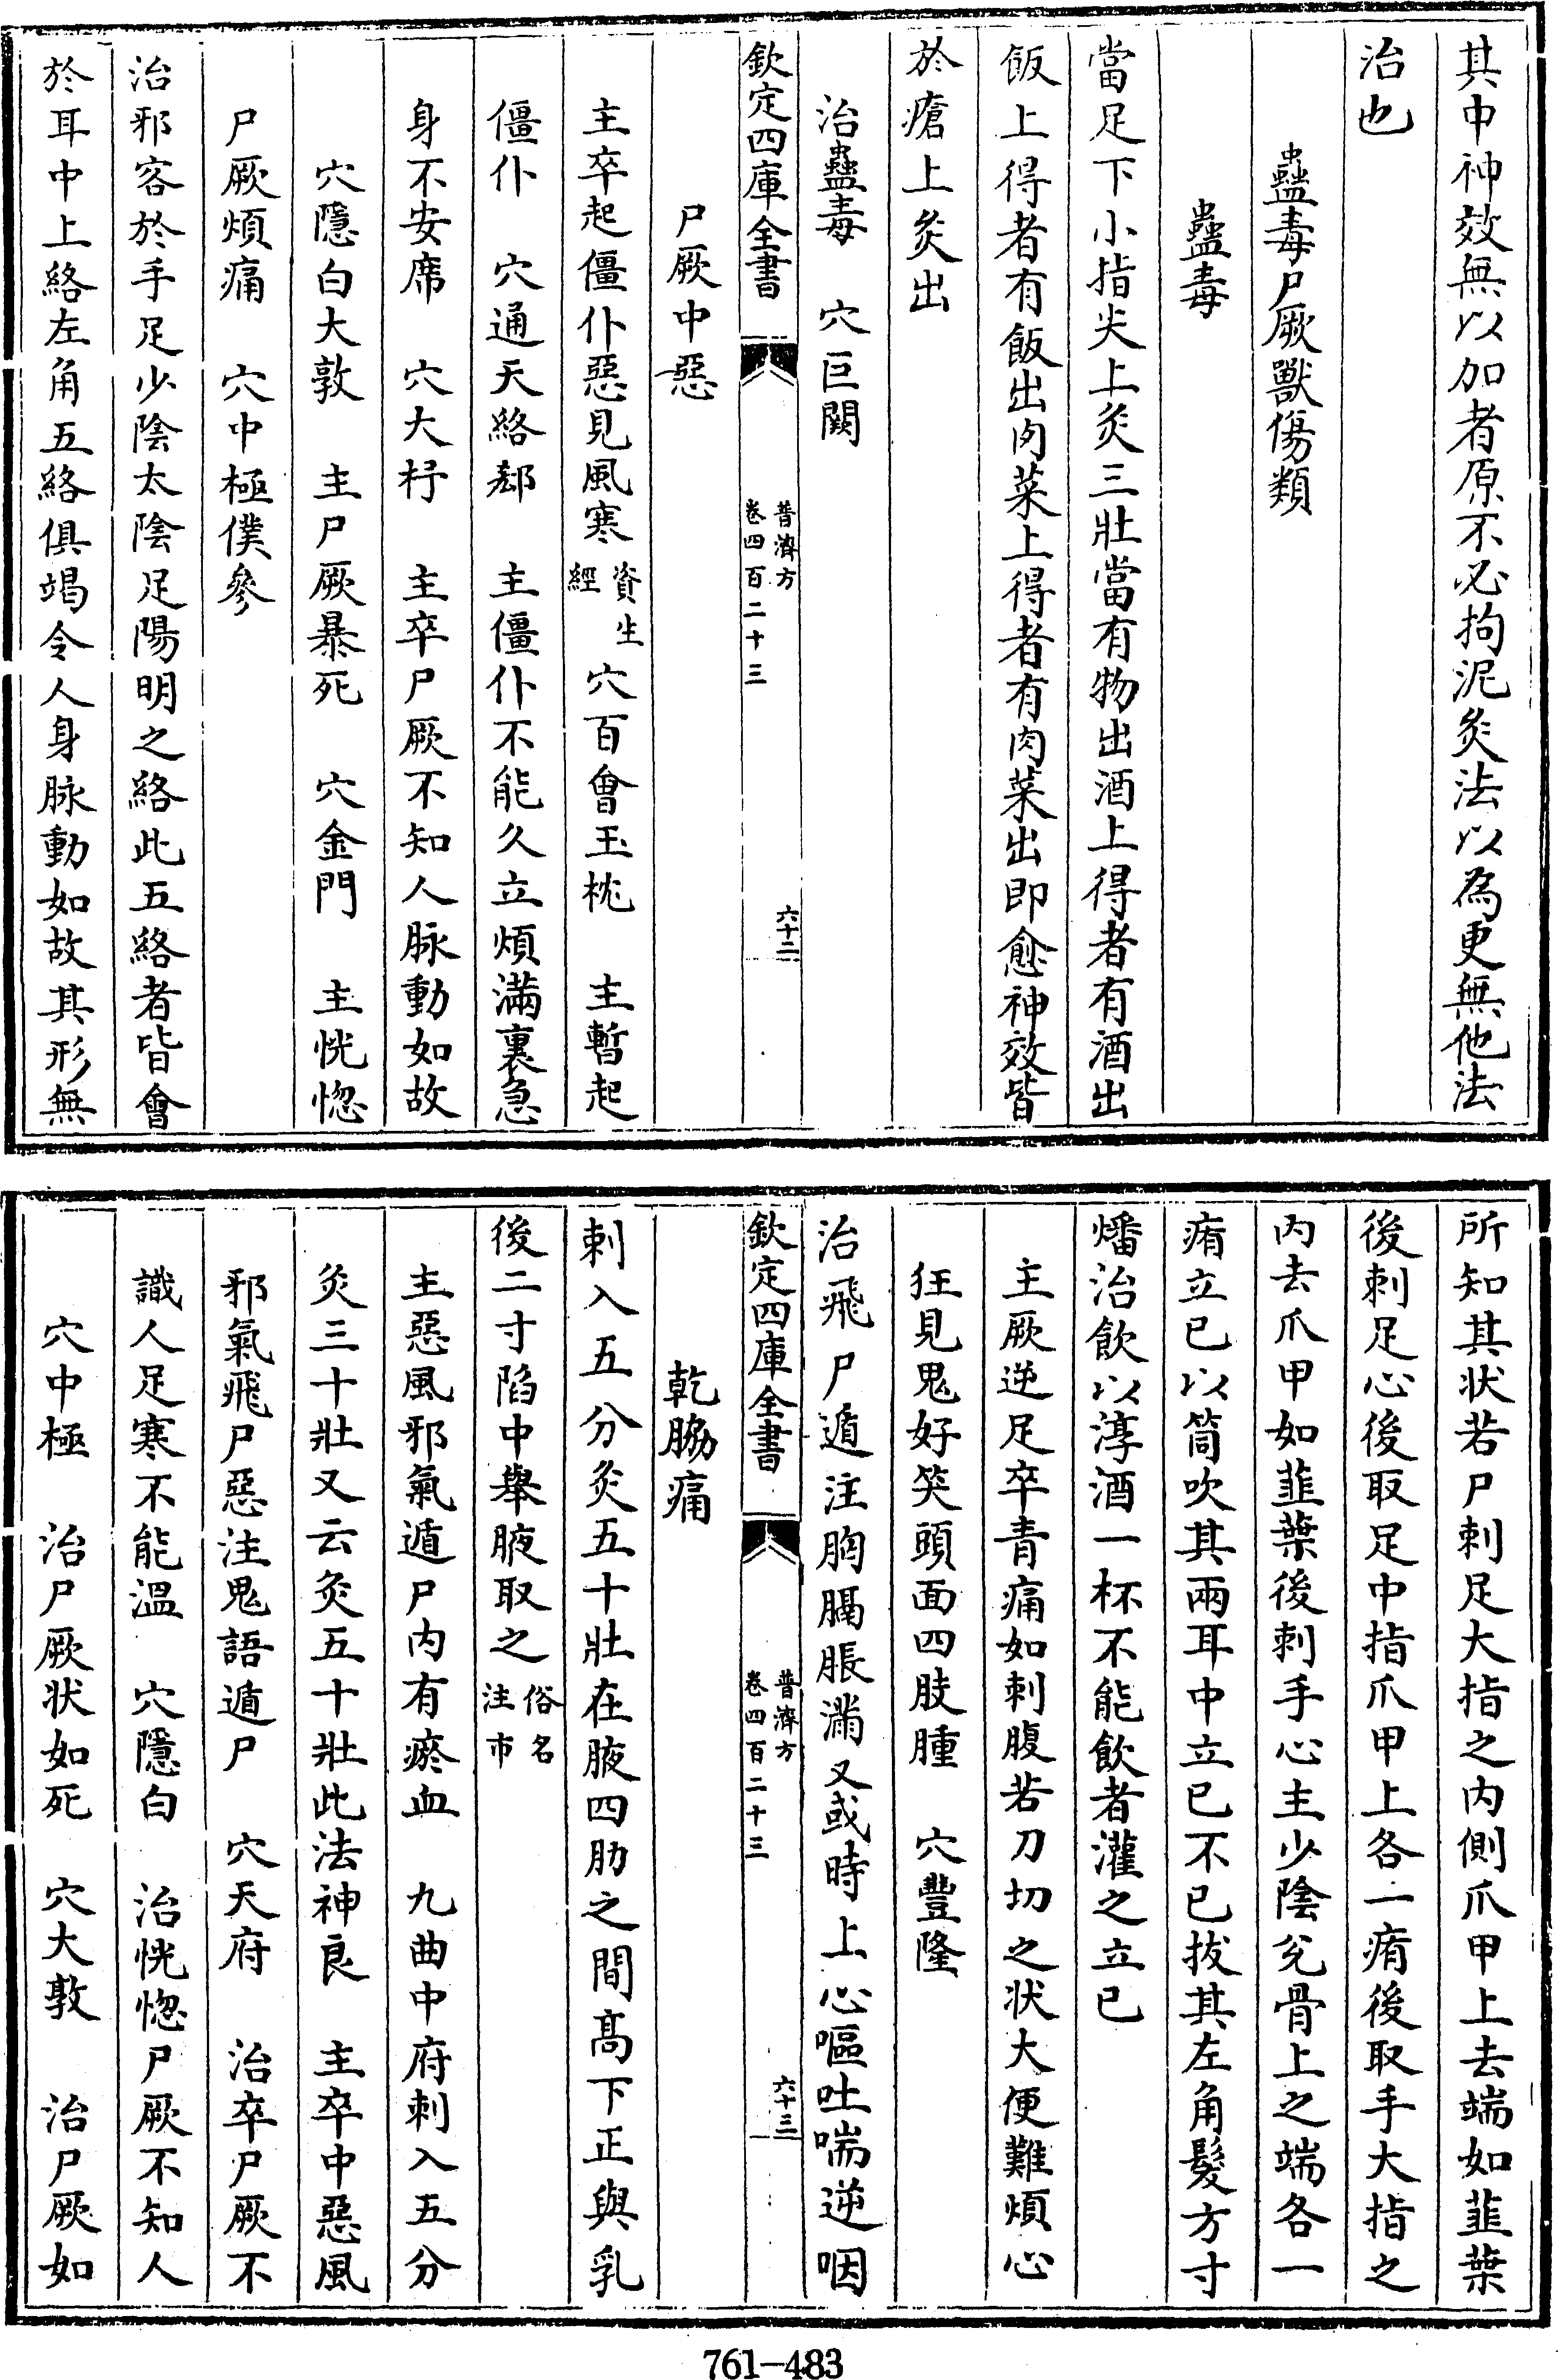 其中神效無以加者原不必拘泥灸法以為更無他法
治也
蠱毒尸厥獸傷類
蠱毒
當足下小指尖上灸三壯當有物出酒上得者有酒出
飯上得者有飯出肉菜上得者有肉菜出即愈神效皆
於瘡上灸出
治蠱毒　穴巨闕
欽定四庫全書
普濟方
卷四百二十三
六十二
尸厥中惡
主卒起僵仆惡見風寒資生經穴百會玉枕　主暫起
僵仆　穴通天絡郄　主僵仆不能久立煩滿裏急
身不安席　穴大杼　主卒尸厥不知人脉動如故
穴隱白大敦　主尸厥暴死　穴金門　主恍惚
尸厥煩痛　穴中極僕參
治邪客於手足少陰太陰足陽明之絡此五絡者皆會
於耳中上絡左角五絡俱竭令人身脉動如故其形無
所知其状若尸刺足大指之内側爪甲上去端如韮葉
後刺足心後取足中指爪甲上各一痏後取手大指之
内去爪甲如韮葉後刺手心主少陰兊骨上之端各一
痏立已以筒吹其兩耳中立已不已拔其左角髮方寸
燔治飲以淳酒一杯不能飲者灌之立已
主厥逆足卒青痛如刺腹若刀切之状大便難煩心
狂見鬼好笑頭面四肢腫　穴豐隆
治飛尸遁注胸膈脹滿又或時上心嘔吐喘逆咽
欽定四庫全書
普濟方
卷四百二十三
六十三
乾脇痛
刺入五分灸五十壯在腋四肋之間髙下正與乳
後二寸陷中舉腋取之俗名注市
主惡風邪氣遁尸内有瘀血　九曲中府刺入五分
灸三十壯又云灸五十壯此法神良　主卒中惡風
邪氣飛尸惡注鬼語遁尸　穴天府　治卒尸厥不
識人足寒不能溫　穴隱白　治恍惚尸厥不知人
穴中極　治尸厥状如死　穴大敦　治尸厥如
761-483